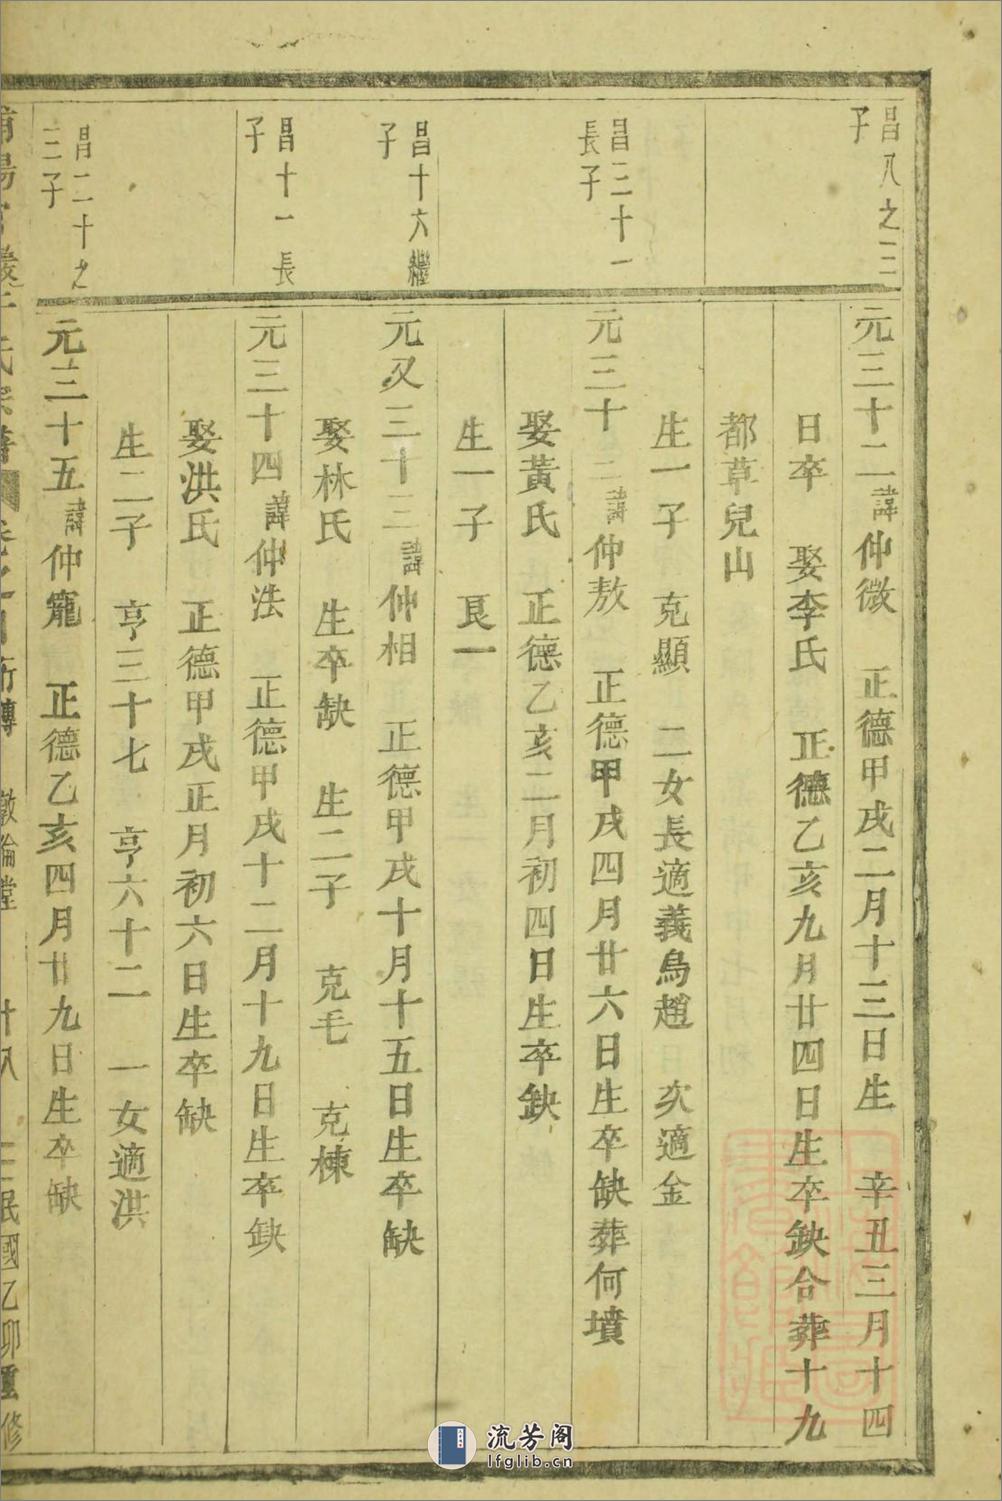 昌八之三
子
元三十二諱仲微 正德甲戌二月十三日生 辛丑三月十四
日卒 娶李氏 正德乙亥九月廿四日生卒缺合葬十九
都草兒山
生一子 克顯 二女長適義烏趙 次適金
昌三十一
長子
元三十三諱仲敖 正德甲戌四月廿六日生卒缺葬何墳
娶黃氏 正德乙亥二月初四日生卒缺
生一子 艮一
昌十六繼
子
元又三十三諱仲相 正德甲戌十月十五日生卒缺
娶林氏 生卒缺 生二子 克毛 克棟
昌十一長
子
元三十四諱仲法 正德甲戌十二月十九日生卒缺
娶洪氏 正德甲戌正月初六日生卒缺
生二子 亨三十七 亨六十二 一女適洪
昌二十之
三子
元三十五諱仲寵 正德乙亥四月廿九日生卒缺
敦倫堂 十八 民國乙卯重修
流芳阁
lfglib.cn